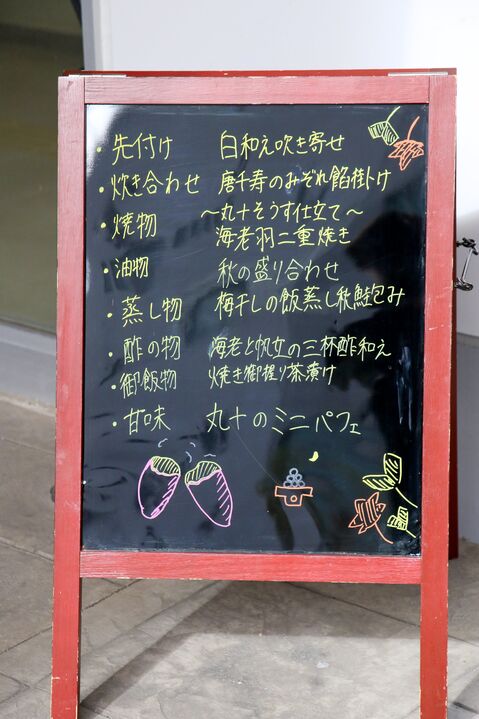 ・先付け 白和え吹き寄せ
・炊き合わせ 唐千寿のみぞれ餡掛け
・焼物 〜丸十そうす仕立て〜
海老羽二重焼き
・油物 秋の盛り合わせ
・蒸し物 梅干しの飯蒸し秋鮭包み
・酢の物 海老と帆立の三杯酢和え
・御飯物 焼き御握り茶漬け
・甘味 丸十のミニパフェ